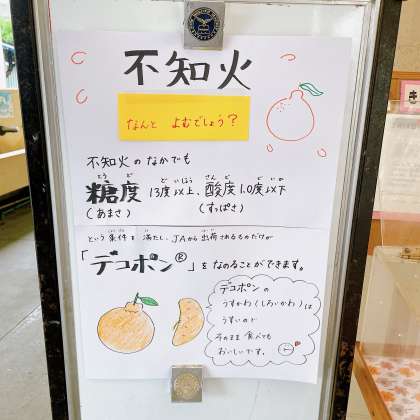 不知火
なんと よむでしょう?
不知火のなかでも
とうど どいじょう さんど どいか
糖度 13度以上、酸度 1.0度以下
(あまさ) (すっぱさ)
という条件を満たし、JAから出荷されるものだけが
「デコポン®」をなのることができます。
デコポンの
うすかわ(しろいかわ)は
うすいので
そのまま食べても
おいしいです。